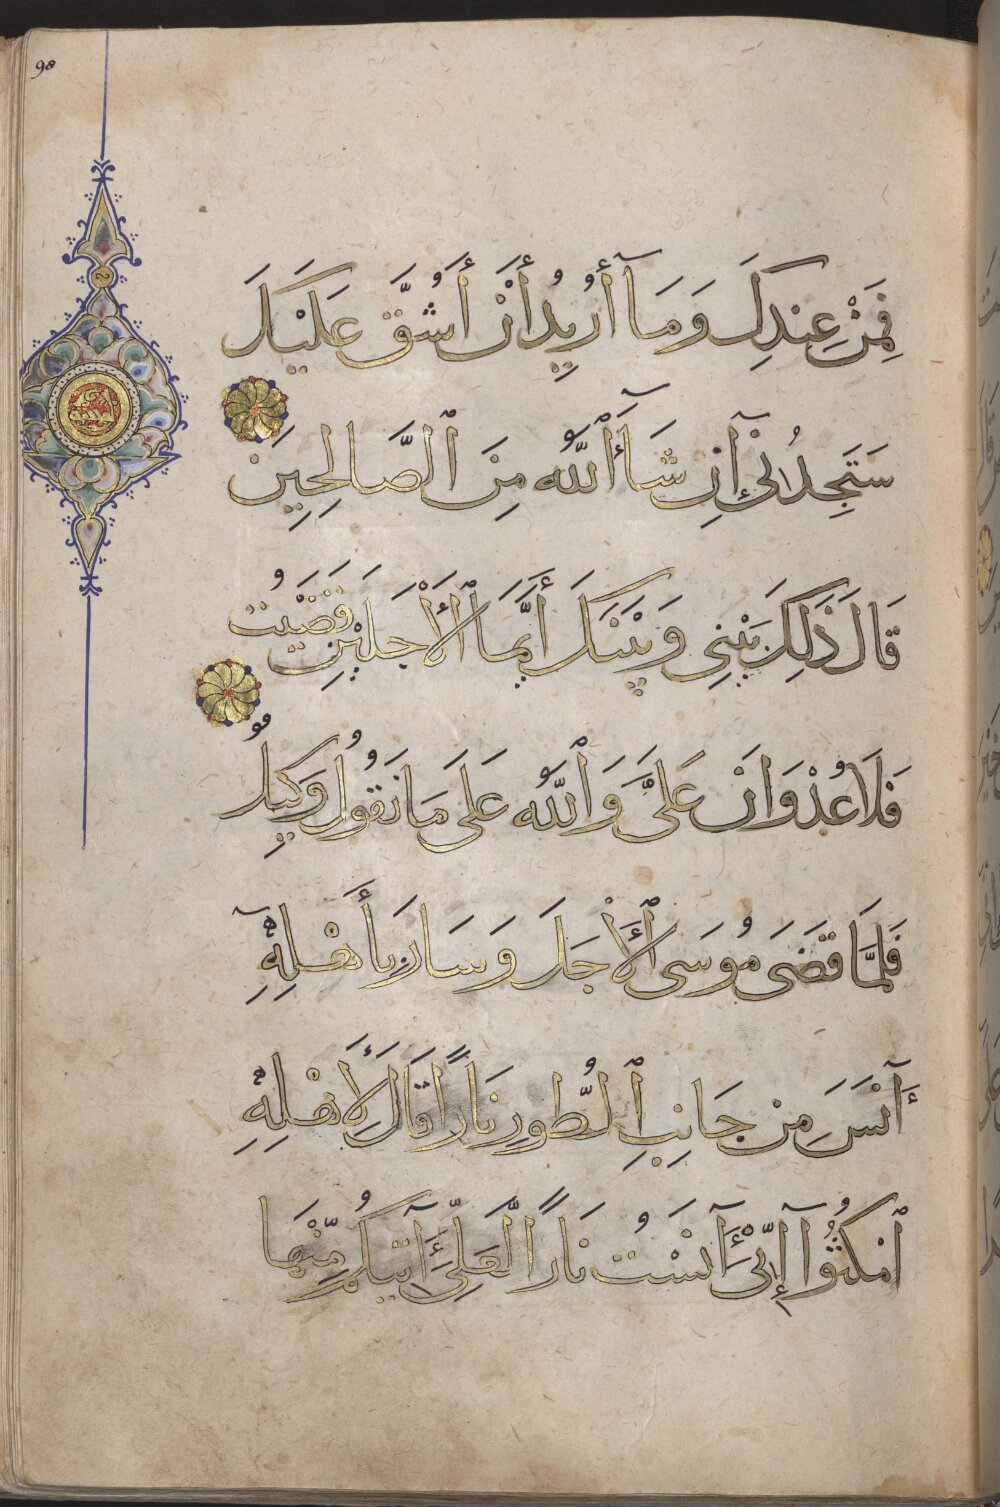 90
فَمِنْ عِندِكَ وَمَآ أُرِيدُ أَنْ أَشُقَّ عَلَيْكَ
سَتَجِدُنِىٓ إِن شَآءَ ٱللَّهُ مِنَ ٱلصَّالِحِينَ
قَالَ ذَٰلِكَ بَيْنِى وَبَيْنَكَ أَيَّمَا ٱلْأَجَلَيْنِ قَضَيْتُ
فَلَا عُدْوَانَ عَلَىَّ وَٱللَّهُ عَلَى مَا نَقُولُ وَكِيلٌ
فَلَمَّا قَضَى مُوسَى ٱلْأَجَلَ وَسَارَ بِأَهْلِهِٓ
ءَانَسَ مِن جَانِبِ ٱلطُّورِ نَارًا قَالَ لِأَهْلِهِ
ٱمْكُثُوٓا إِنِّىٓ ءَانَسْتُ نَارًا لَّعَلِّىٓ ءَاتِيكُم مِّنْهَا